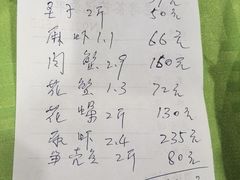 圣子 2斤 50元
麻虾 1.1 66元
肉蟹 2.9 160元
花蟹 1.3 72元
花螺 2斤 130元
麻虾 2.4 235元
2斤 80元